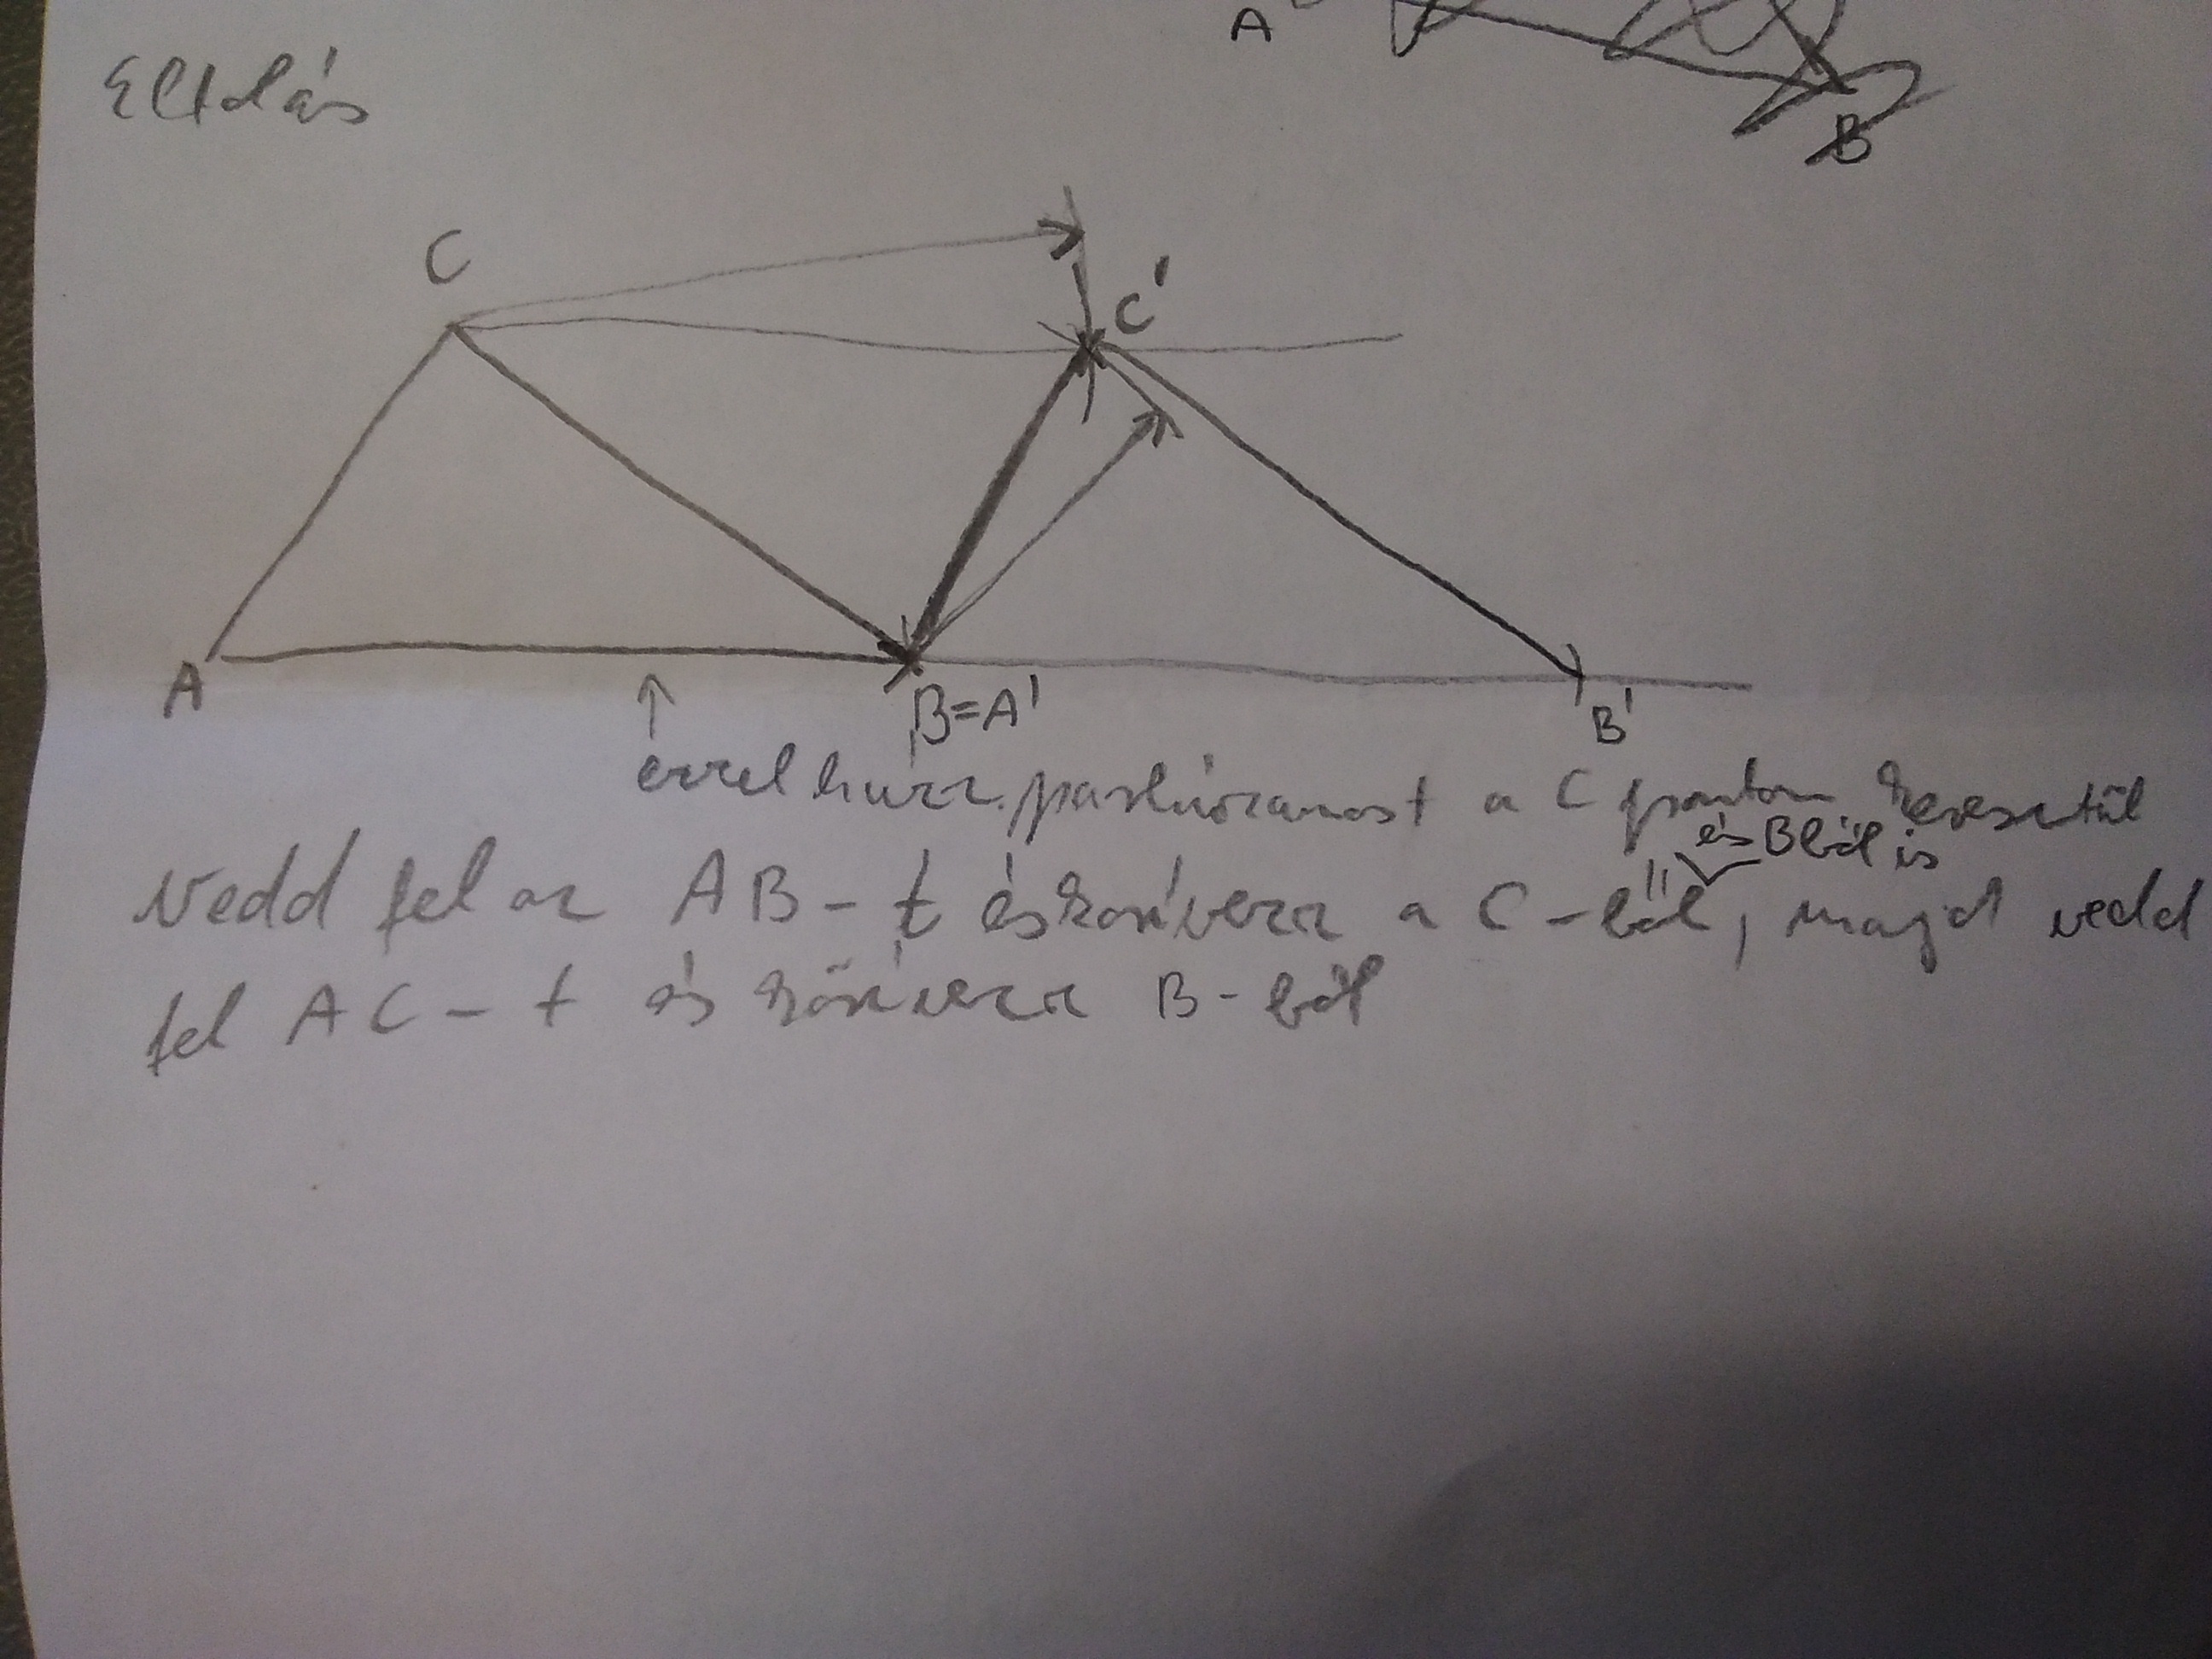 Eltolás
A
B
C
C'
A
B=A'
B'
evvel húzz párhúzamost a C ponton keresztül
és Bből is
Vedd fel az AB-t és körívezz a C-ből, majd vedd
fel AC-t és körívezz B-ből